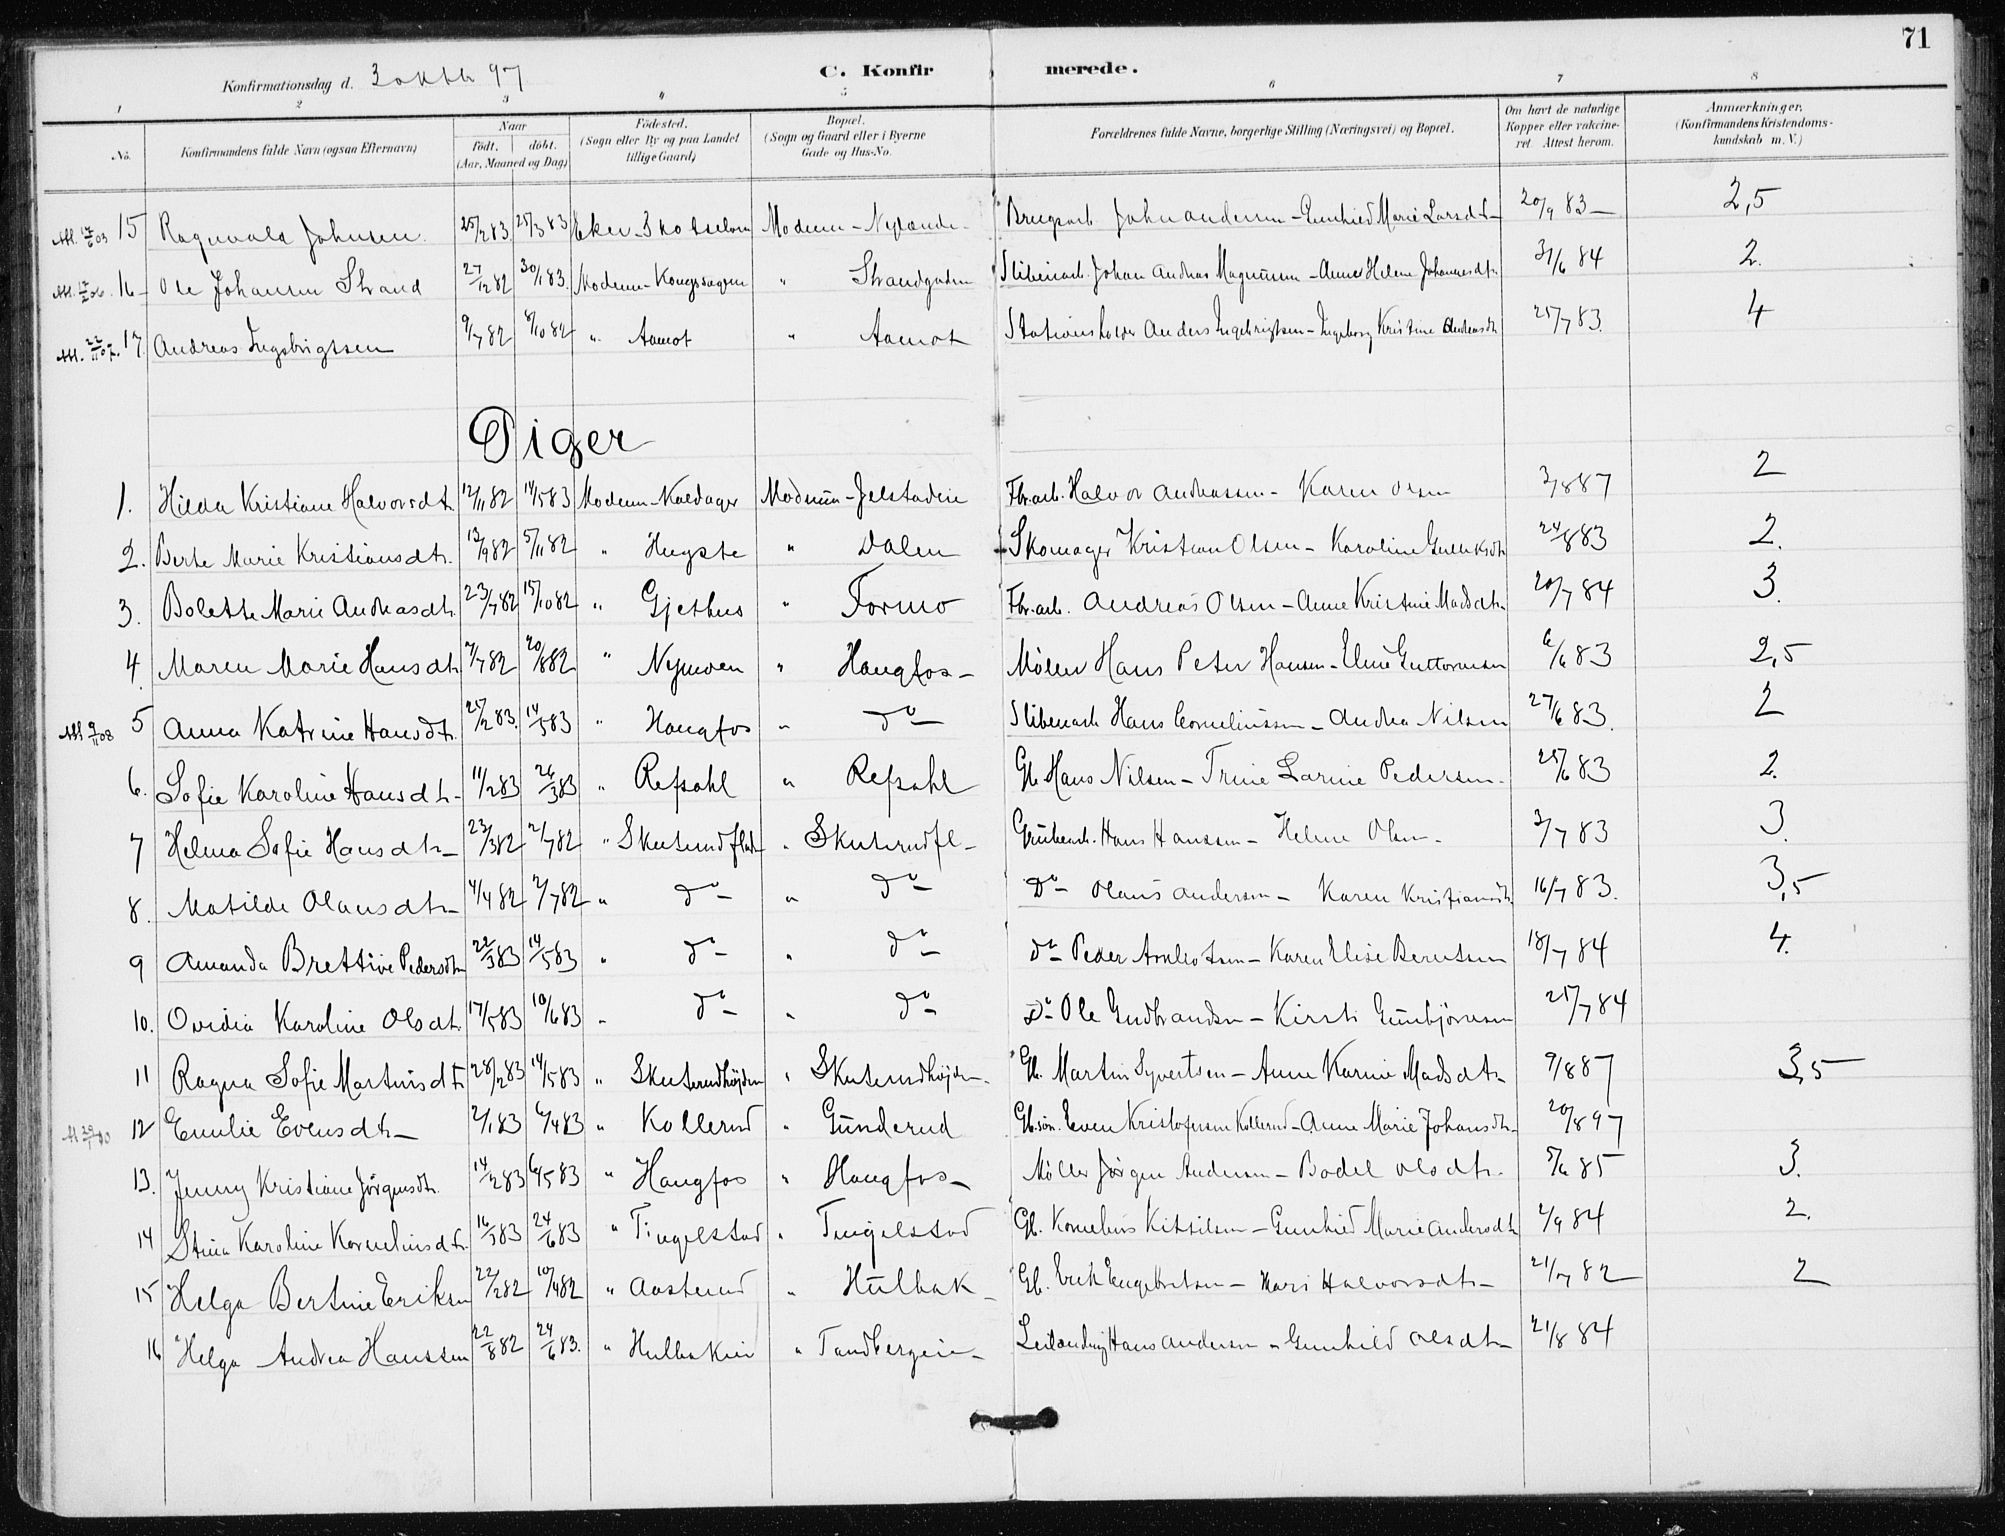 71
Konfirmationsdag d. 3 oktb 97
C. Konfirmerede.
1 2 3 4 5 6 7 8
No. Konfirmandens fulde Navn (ogsaa Efternavn) Naar født. døbt. (Aar, Maaned og Dag) Fødested. (Sogn eller By og paa Landet tillige Gaard) Bopæl. (Sogn og Gaard eller i Byerne Gade og Hus-No. Forældrenes fulde Navne, borgerlige Stilling (Næringsvei) og Bopæl. Om havt de naturlige Kopper eller vakcineret. Attest herom. Anmærkninger. (Konfirmandens Kristendomskundskab m. V.)
15 Ragnvald Johnsen 25/2 83 25/3 83 Eker - Skotselven Modum - Nylænde Brugsarb. John Andersen - Gunhild Marie Larsdt. 20/9 83 2,5
16 Ole Johansen Strand 27/12 82 30/1 83. Modum - Kongssagen " Strandgaden Sliberiarb. Johan Andreas Magnussen - Anne Helene Johannesdt. 31/6 84 2.
17 Andreas Ingebrigtsen 9/7 82 8/10 82 " Aamot " Aamot Stationsholder Anders Ingebrigtsen - Ingeborg Kristine Andreasdt. 25/7 83. 4
Piger
1. Hilda Kristiane Halvorsdt. 12/11 82 14/5 83 Modum - Kaldager Modum - Jelstadeie Fbr.arb. Halvor Andreassen - Karen Olsen 3/8 87 2
2. Berte Marie Kristiansdt. 13/9 82 5/11 82 " Hugste " Dalen Skomager Kristian Olsen - Karoline Gulliksdt. 24/8 83 2.
3. Bolette Marie Andreasdt. 23/7 82 15/10 82 " Gjethus " Formo Fbr.arb. Andreas Olsen - Anne Kristine Madsdt. 20/7 84 3.
4. Maren Marie Hansdt. 2/7 82 20/8 82 " Nymoen " Haugfos Møller Hans Peter Hansen - Eline Guttormsen 6/6 83 2,5
5 Anna Katrine Hansdt. 25/2 83. 14/5 83 " Haugfos " do Sliberiarb. Hans Corneliussen - Andrea Nilsen 27/6 83. 2
6. Sofie Karoline Hansdt. 11/2 83 26/3 83 " Refsahl " Refsahl Gb. Hans Nilsen - Trine Larine Pedersen 25/6 83 2.
7 Helma Sofie Hansdt. 23/3 82 2/7 82 " Skuterudflaten " Skuterudfl. Grubearb. Hans Hanssen - Helene Olsen 3/7 83 3.
8. Matilde Olausdt. 4/4 82 2/7 82 " do " do Do Olaus Andersen - Karen Kristiansdt. 16/7 83. 3,5
9 Amanda Brettine Pedersdt. 22/3 83 14/5 83 " do " do do Peder Arnleotsen - Karen Elise Berntsen 18/7 84 4.
10. Ovidia Karoline Olsdt. 17/5 83 10/6 83 " do " do Do Ole Gudbrandsen - Kirsti Gunbjørnsen 25/7 84
11 Ragna Sofie Martinsdt. 28/2 83 14/5 83 " Skuterudhøjden " Skuterudhøjden Gb. Martin Syvertsen - Anne Karine Madsdt. 9/8 87 3,5
12 Emilie Evensdt. 2/1 83 6/4 83 " Kollerud " Gunderud Gb.søn. Even Kristofersen Kollerud - Anne Marie Johansdt. 20/8 97
13. Jenny Kristiane Jørgensdt. 14/2 83 6/5 83 " Haugfos " Haugfos Møller Jørgen Andersen - Bodel Olsdt. 5/6 85 3.
14 Stina Karoline Korneliusdt. 16/3 83 24/6 83 " Tingelstad " Tingelstad Gb. Kornelius Kittilsen - Gunhild Marie Andersdt. 2/9 84 2.
15 Helga Bertine Eriksen 22/2 82 10/4 82 " Aasterud " Hulbak Gb. Erik Engebretsen - Mari Halvorsdt. 21/7 82 2
16 Helga Andrea Hanssen 22/8 82 24/6 83. " Hulbakeie " Tandbergeie Leilænding Hans Andersen - Gunhild Olsdt. 21/8 84